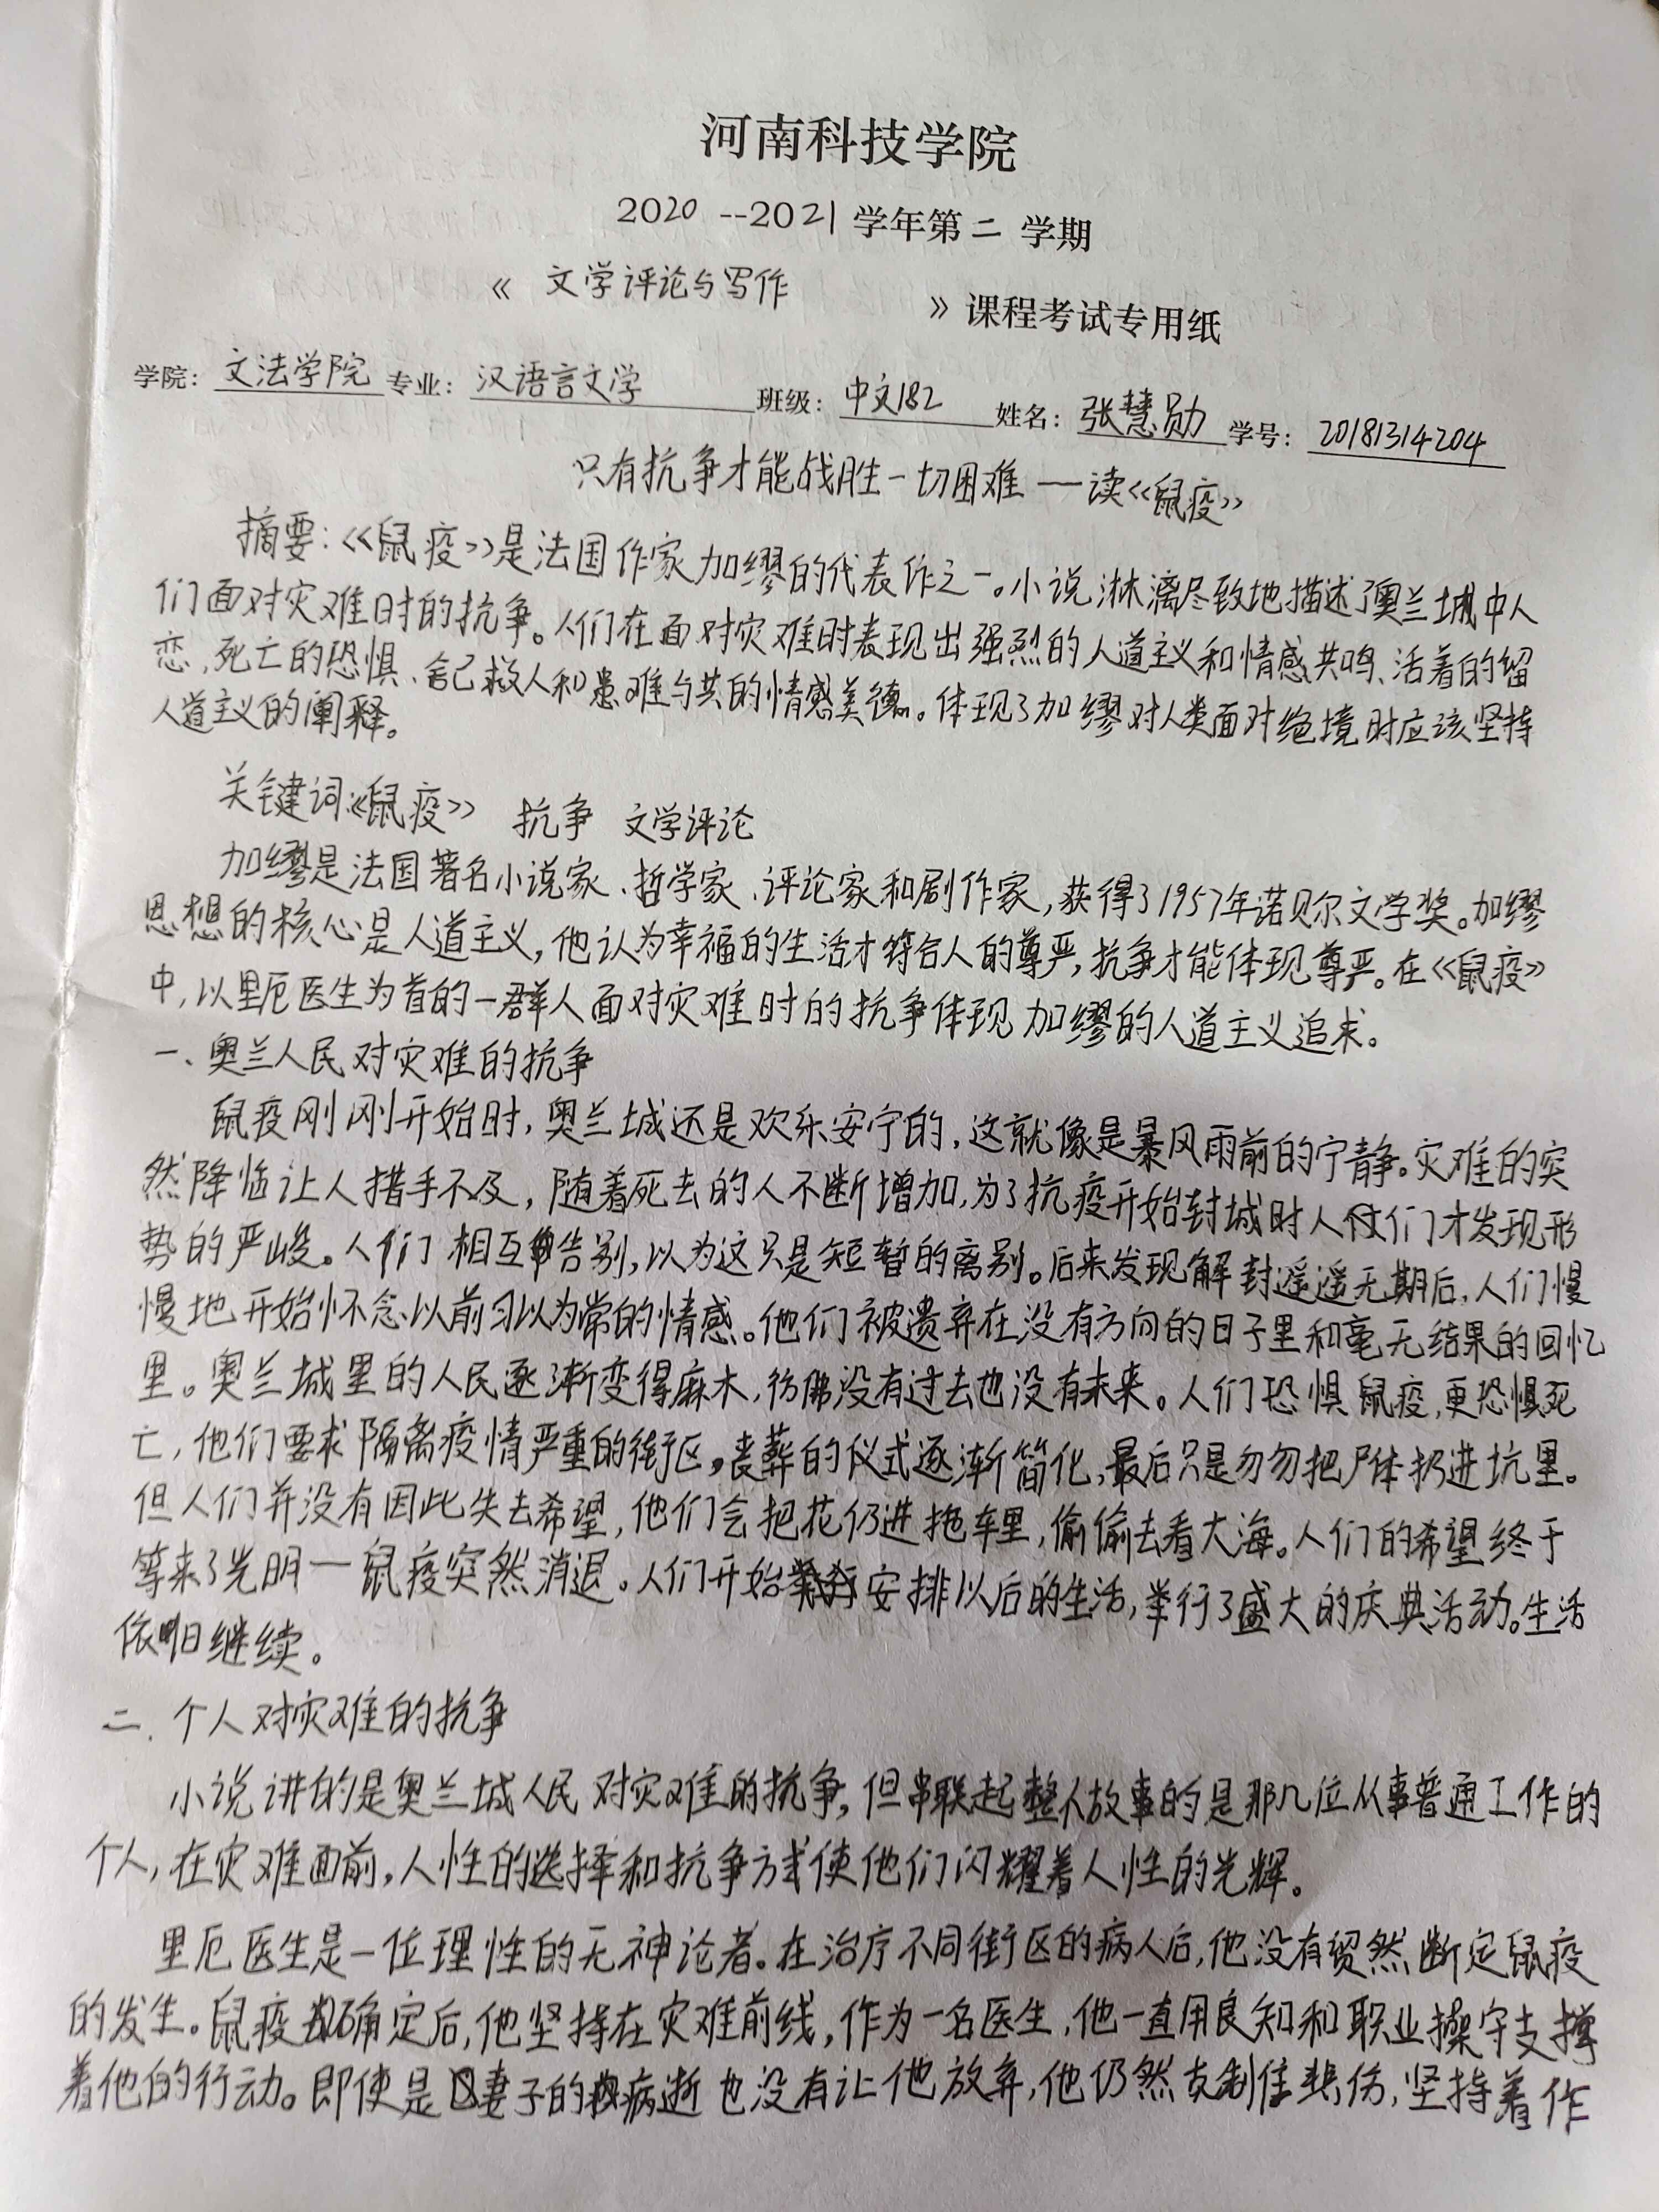 河南科技学院
2020--2021学年第二学期
《文学评论与写作》课程考试专用纸
学院：文法学院 专业：汉语言文学 班级：中文182 姓名：张慧勋 学号：20181314204
只有抗争才能战胜一切困难——读《鼠疫》
摘要：《鼠疫》是法国作家加缪的代表作之一。小说淋漓尽致地描述了奥兰城中人
们面对灾难时的抗争。人们在面对灾难时表现出强烈的人道主义和情感共鸣、活着的留
恋、死亡的恐惧、舍己救人和患难与共的情感美德。体现了加缪对人类面对绝境时应该坚持
人道主义的阐释。
关键词：《鼠疫》 抗争 文学评论
加缪是法国著名小说家、哲学家、评论家和剧作家，获得了1957年诺贝尔文学奖。加缪
思想的核心是人道主义，他认为幸福的生活才符合人的尊严，抗争才能体现尊严。在《鼠疫》
中，以里厄医生为首的一群人面对灾难时的抗争体现加缪的人道主义追求。
一、奥兰人民对灾难的抗争
鼠疫刚刚开始时，奥兰城还是欢乐安宁的，这就像是暴风雨前的宁静。灾难的突
然降临让人措手不及，随着死去的人不断增加，为了抗疫开始封城时人们才发现形
势的严峻。人们相互告别，以为这只是短暂的离别。后来发现解封遥遥无期后，人们慢
慢地开始怀念以前习以为常的情感。他们被遗弃在没有方向的日子里和毫无结果的回忆
里。奥兰城里的人民逐渐变得麻木，仿佛没有过去也没有未来。人们恐惧鼠疫，更恐惧死
亡，他们要求隔离疫情严重的街区，丧葬的仪式逐渐简化，最后只是匆匆把尸体扔进坑里。
但人们并没有因此失去希望，他们会把花仍进拖车里，偷偷去看大海。人们的希望终于
等来了光明一鼠疫突然消退。人们开始安排以后的生活，举行了盛大的庆典活动。生活
依旧继续。
二、个人对灾难的抗争
小说讲的是奥兰城人民对灾难的抗争，但串联起整个故事的是那几位从事普通工作的
个人，在灾难面前，人性的选择和抗争方式使他们闪耀着人性的光辉。
里厄医生是一位理性的无神论者。在治疗不同街区的病人后，他没有贸然断定鼠疫
的发生。鼠疫确定后，他坚持在灾难前线，作为一名医生，他一直用良知和职业操守支撑
着他的行动。即使是妻子的病逝也没有让他放弃，他仍然克制住悲伤，坚持着作